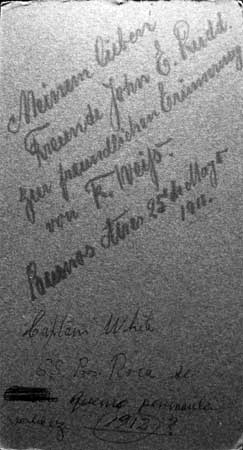 Meinem lieben
Freunde John E. Rudd
zur freundlichen Erinnerung
von F. Weiß.
Buenos Aires 25 de Mayo
1911.
Captain White
SS
de
peninsula
(1912)?